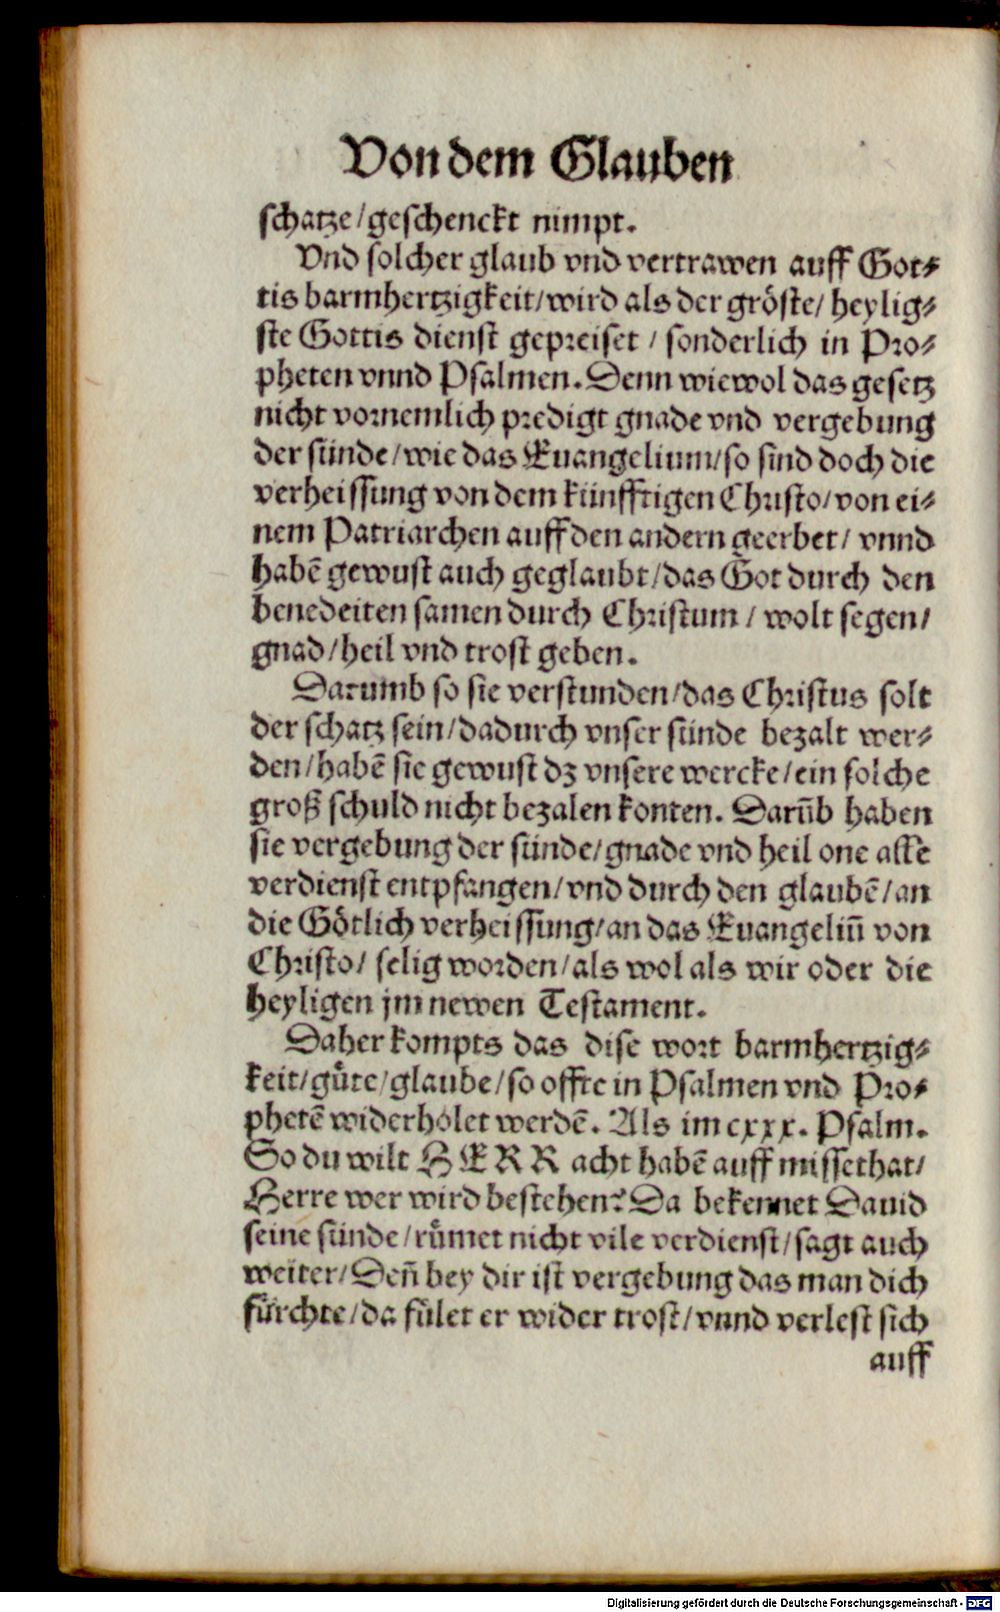 Von dem Glauben
schatze/geschenckt nimpt.
Vnd solcher glaub vnd vertrawen auff Got⸗
tis barmhertzigkeit/wird als der gröste/ heylig⸗
ste Gottis dienst gepreiset / sonderlich in Pro⸗
pheten vnnd Psalmen. Denn wiewol das gesetz
nicht vornemlich predigt gnade vnd vergebung
der sünde/wie das Euangelium/so sind doch die
verheissung von dem künfftigen Christo/von ei⸗
nem Patriarchen auff den andern geerbet/ vnnd
habē gewust auch geglaubt/das Got durch den
benedeiten samen durch Christum / wolt segen/
gnad/heil vnd trost geben.
Darumb so sie verstunden/das Christus solt
der schatz sein/dadurch vnser sünde bezalt wer⸗
den/habē sie gewust dz vnsere wercke/ein solche
groß schuld nicht bezalen konten. Darūb haben
sie vergebung der sünde/gnade vnd heil one alle
verdienst entpfangen/vnd durch den glaubē/an
die Götlich verheissung/an das Euangeliū von
Christo/ selig worden/als wol als wir oder die
heyligen jm newen Testament.
Daher kompts das dise wort barmhertzig⸗
keit/güte/glaube/so offte in Psalmen vnd Pro⸗
phetē widerholet werdē. Als im cxxx. Psalm.
So du wilt HERR acht habē auff missethat/
Herre wer wird bestehen? Da bekennet Dauid
seine sünde/rümet nicht vile verdienst/sagt auch
weiter/Deñ bey dir ist vergebung das man dich
fürchte/da fület er wider trost/vnnd verlest sich
auff
Digitalisierung gefördert durch die Deutsche Forschungsgemeinschaft - DFG